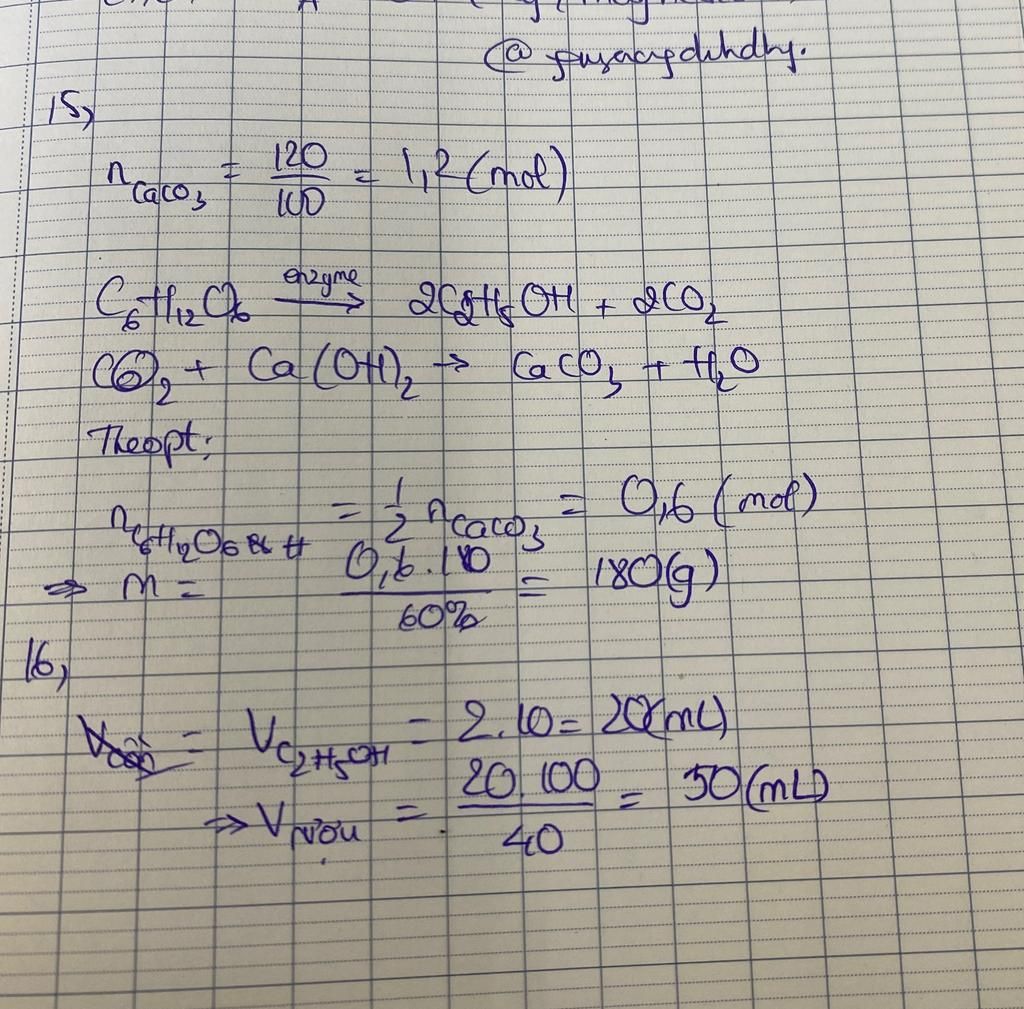 @ fuyacydihdhy.
15,
n CaCO3 = 120/100 = 1,2 (mol)
C6H12O6 enzyme → 2C2H5OH + 2CO2
CO2 + Ca(OH)2 → CaCO3 + H2O
Theopt:
nC6H12O6 = 1/2 nCaCO3 = 0,6 (mol)
⇒ m = 0,6.180/60% = 180(g)
16,
= VC2H5OH = 2.10 = 20(mL)
⇒ V rượu = 20.100/40 = 50(mL)